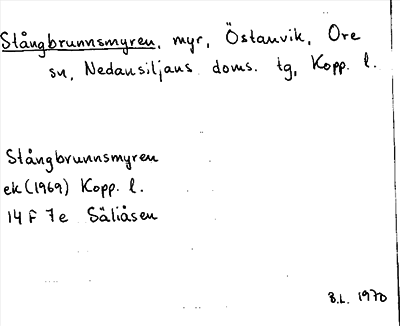 Stångbrunnsmyren, myr, Östanvik, Ore
sn, Nedansiljans doms. tg, Kopp. l.
Stångbrunnsmyren
ek (1969) Kopp. l.
14 F 7e Säliåsen
B.L. 1970